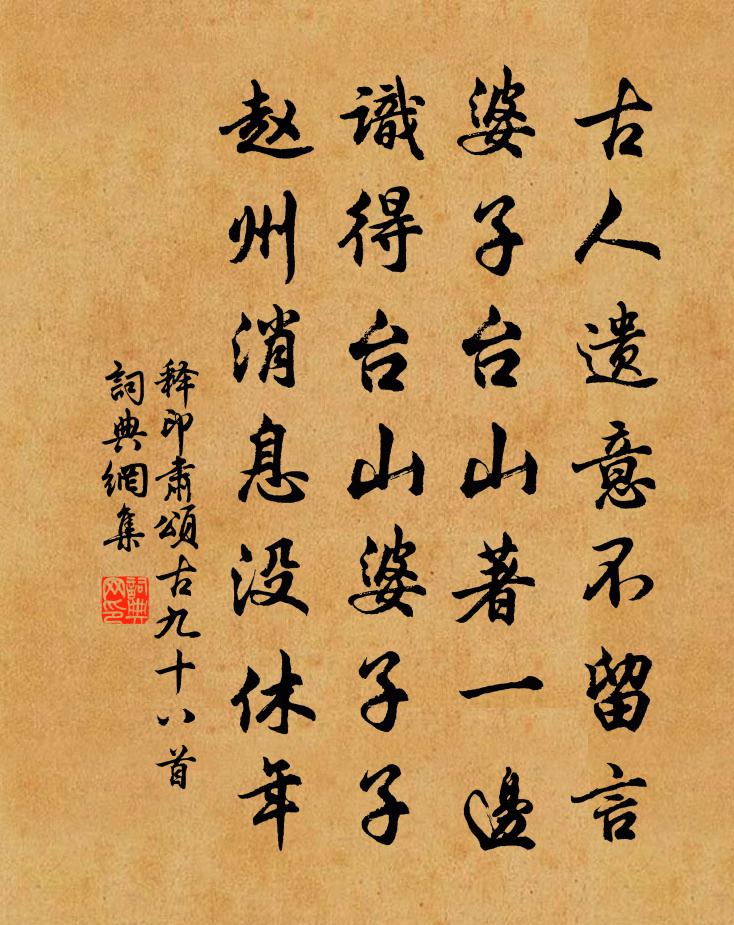 古人遗意不留言
婆子台山著一邊
識得台山婆子子
赵州消息没休年
释印肅頌古九十八首
詞典網集
詞典網印